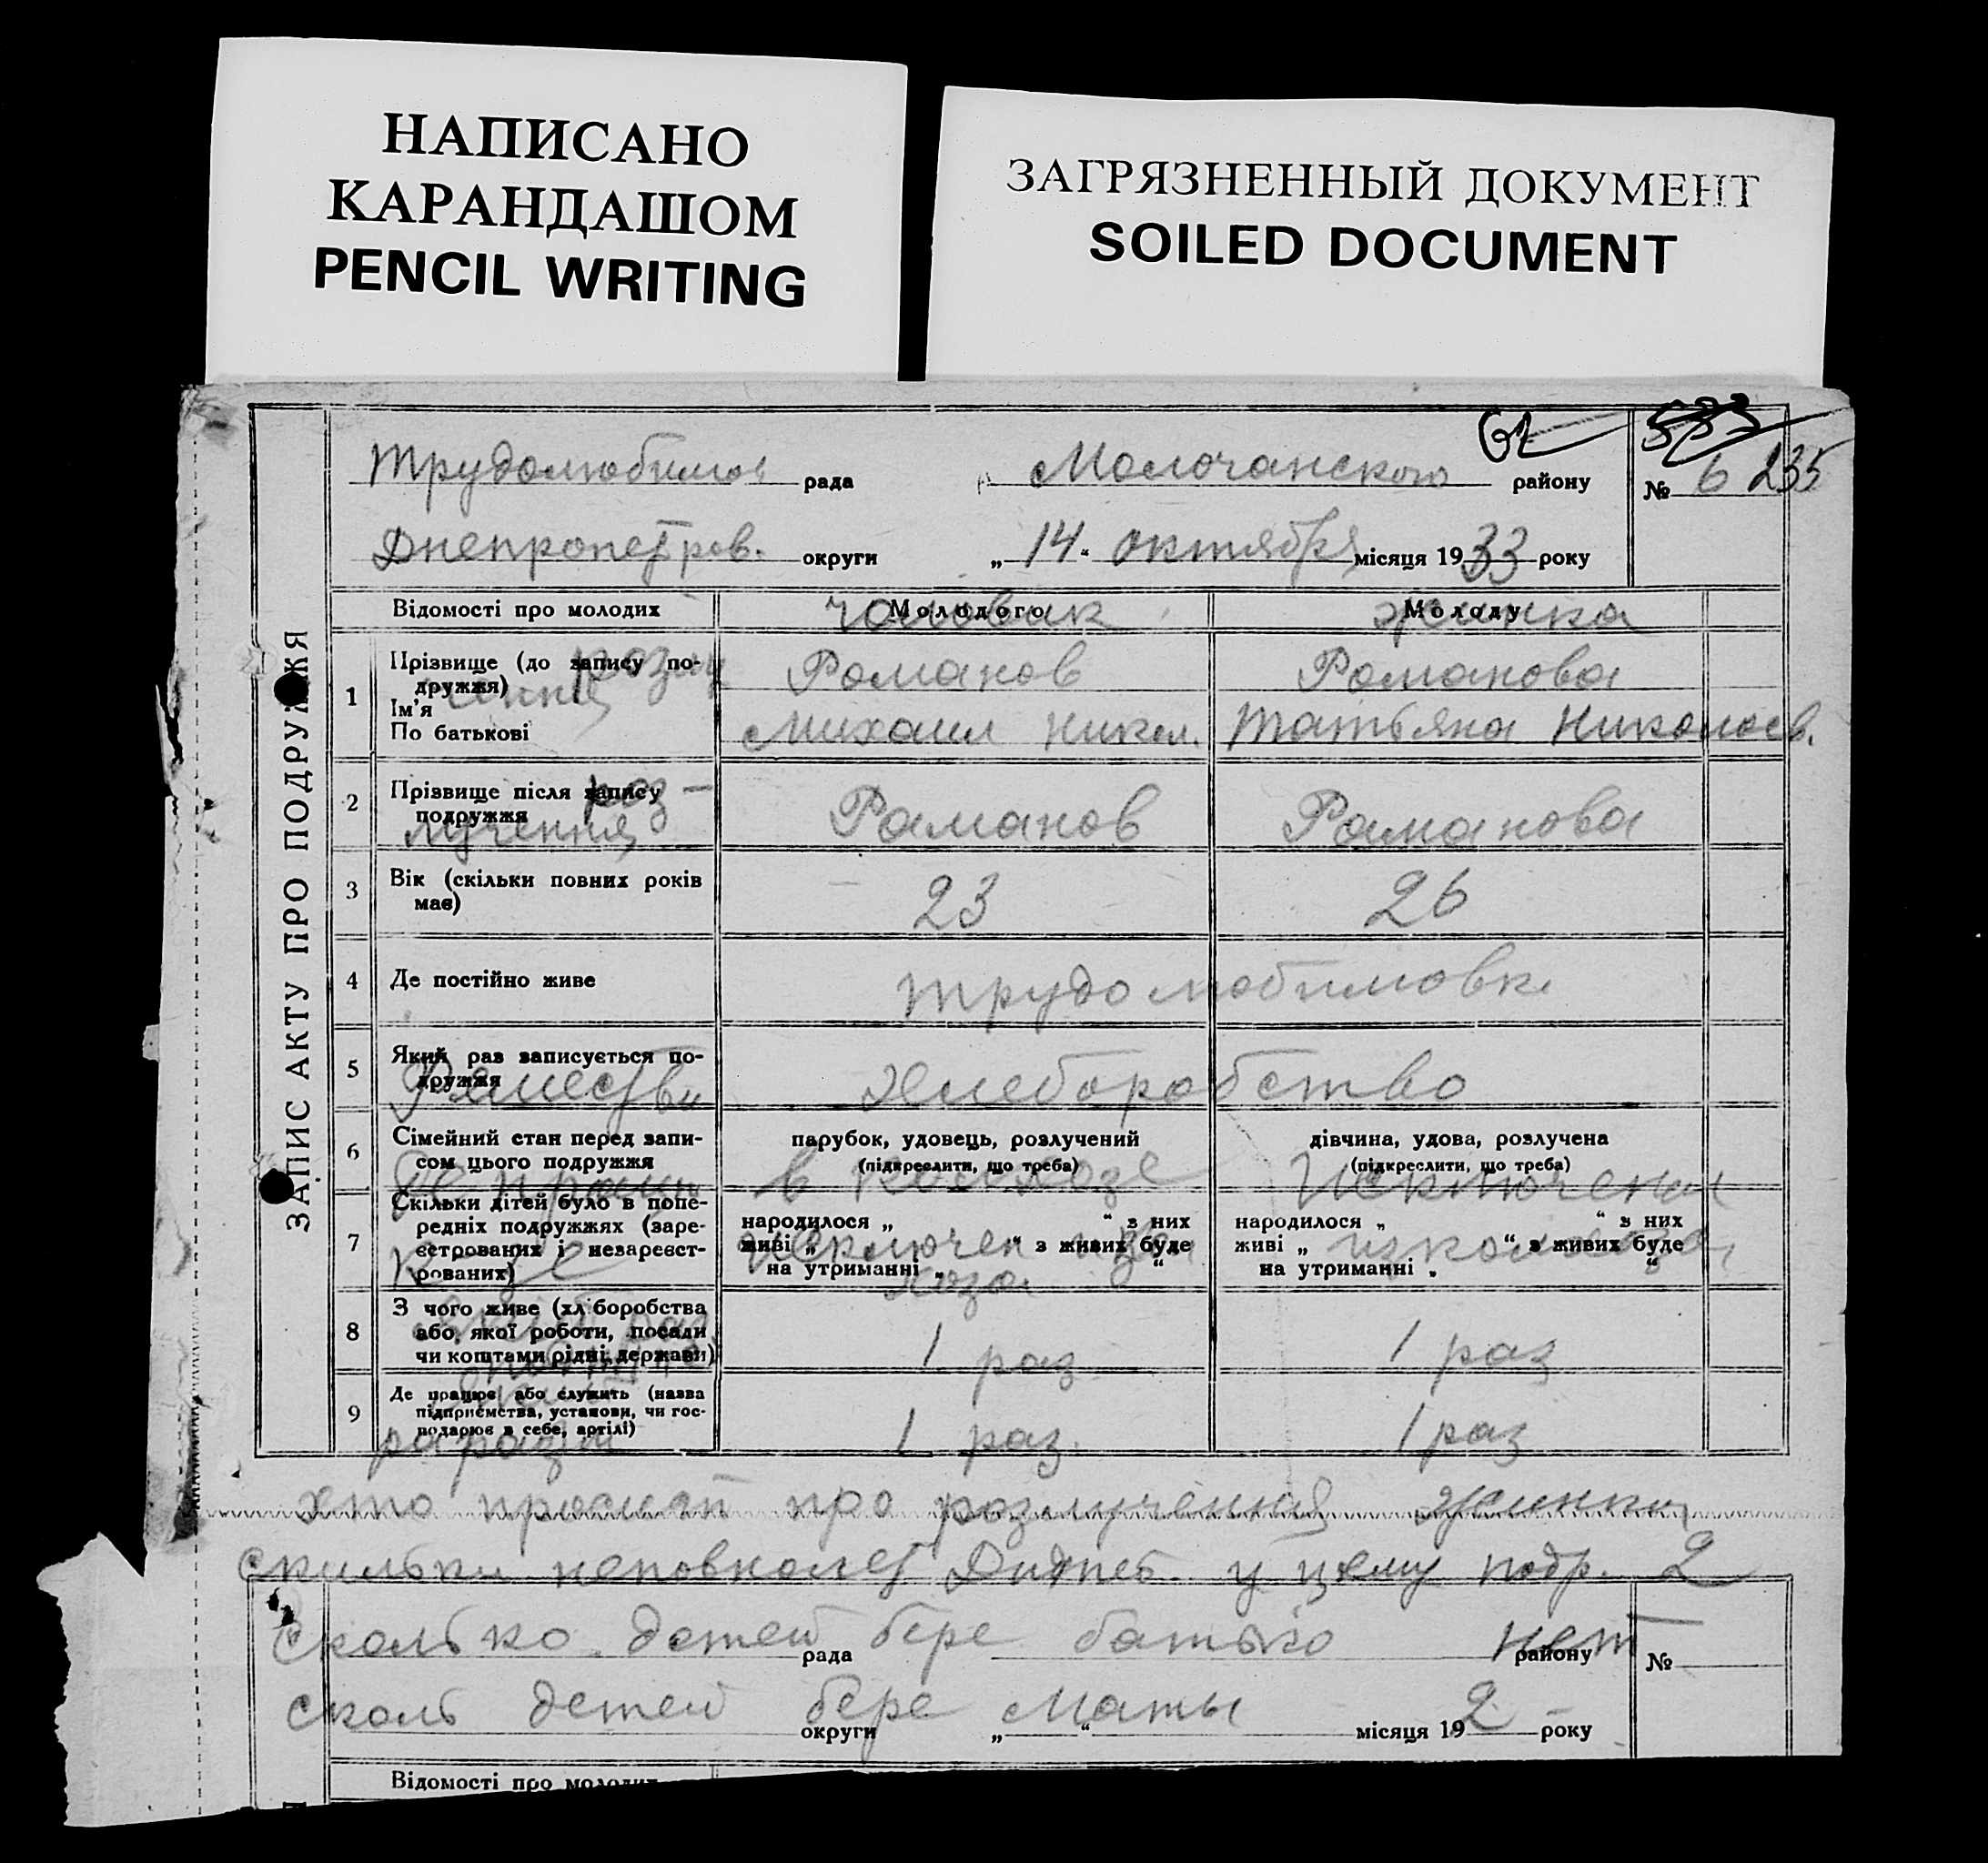 НАПИСАНО
КАРАНДАШОМ
PENCIL WRITING
ЗАГРЯЗНЕННЫЙ ДОКУМЕНТ
SOILED DOCUMENT
ЗАПИС АКТУ ПРО ПОДРУЖЖЯ
61 583
Трудолюбимов рада Молочанского району № 6 235
Днепропетров. округи „14“ октября місяця 1933 року
Відомості про молодих Молодого чоловик Молоду жинка
1 Прізвище (до запису подружжя) Романов Романова
Ім'я
По батькові Михаил Никол. Татьяна Николаев.
2 Прізвище після запису
подружжя Раманов Раманова
роз-
лучения
3 Вік (скільки повних років
має) 23 26
4 Де постійно живе Трудолюбимовк.
5 Який раз записується по-
дружжя Хлеборобство
6 Сімейний стан перед запи-
сом цього подружжя
парубок, удовець, розлучений
(підкреслити, що треба)
в колхозе
дівчина, удова, розлучена
(підкреслити, що треба)
Исключена
7 Скільки дітей було в попе-
редніх подружжях (заре-
єстрованих і незареєст-
рованих)
народилося „ “ з них
живі „ “ з живих буде
на утриманні „ “
исключен из кол
хоза
народилося „ “ з них
живі „ “ з живих буде
на утриманні „ “
из колхоза
8 З чого живе (хліборобства
або, якої роботи, посади
чи коштами рідні, держави) 1 раз 1 раз
9 Де працює або служить (назва
підприємства, установи, чи гос-
подарює в себе, артілі) 1 раз 1 раз
хто просит про розлучения жинка
скильки неповнолет у цему подр. 2
Сколько детей бере батько нет
рада району №
сколь детей бере Маты 2 -
округи „ “ місяця 19 року
Відомості про молодих